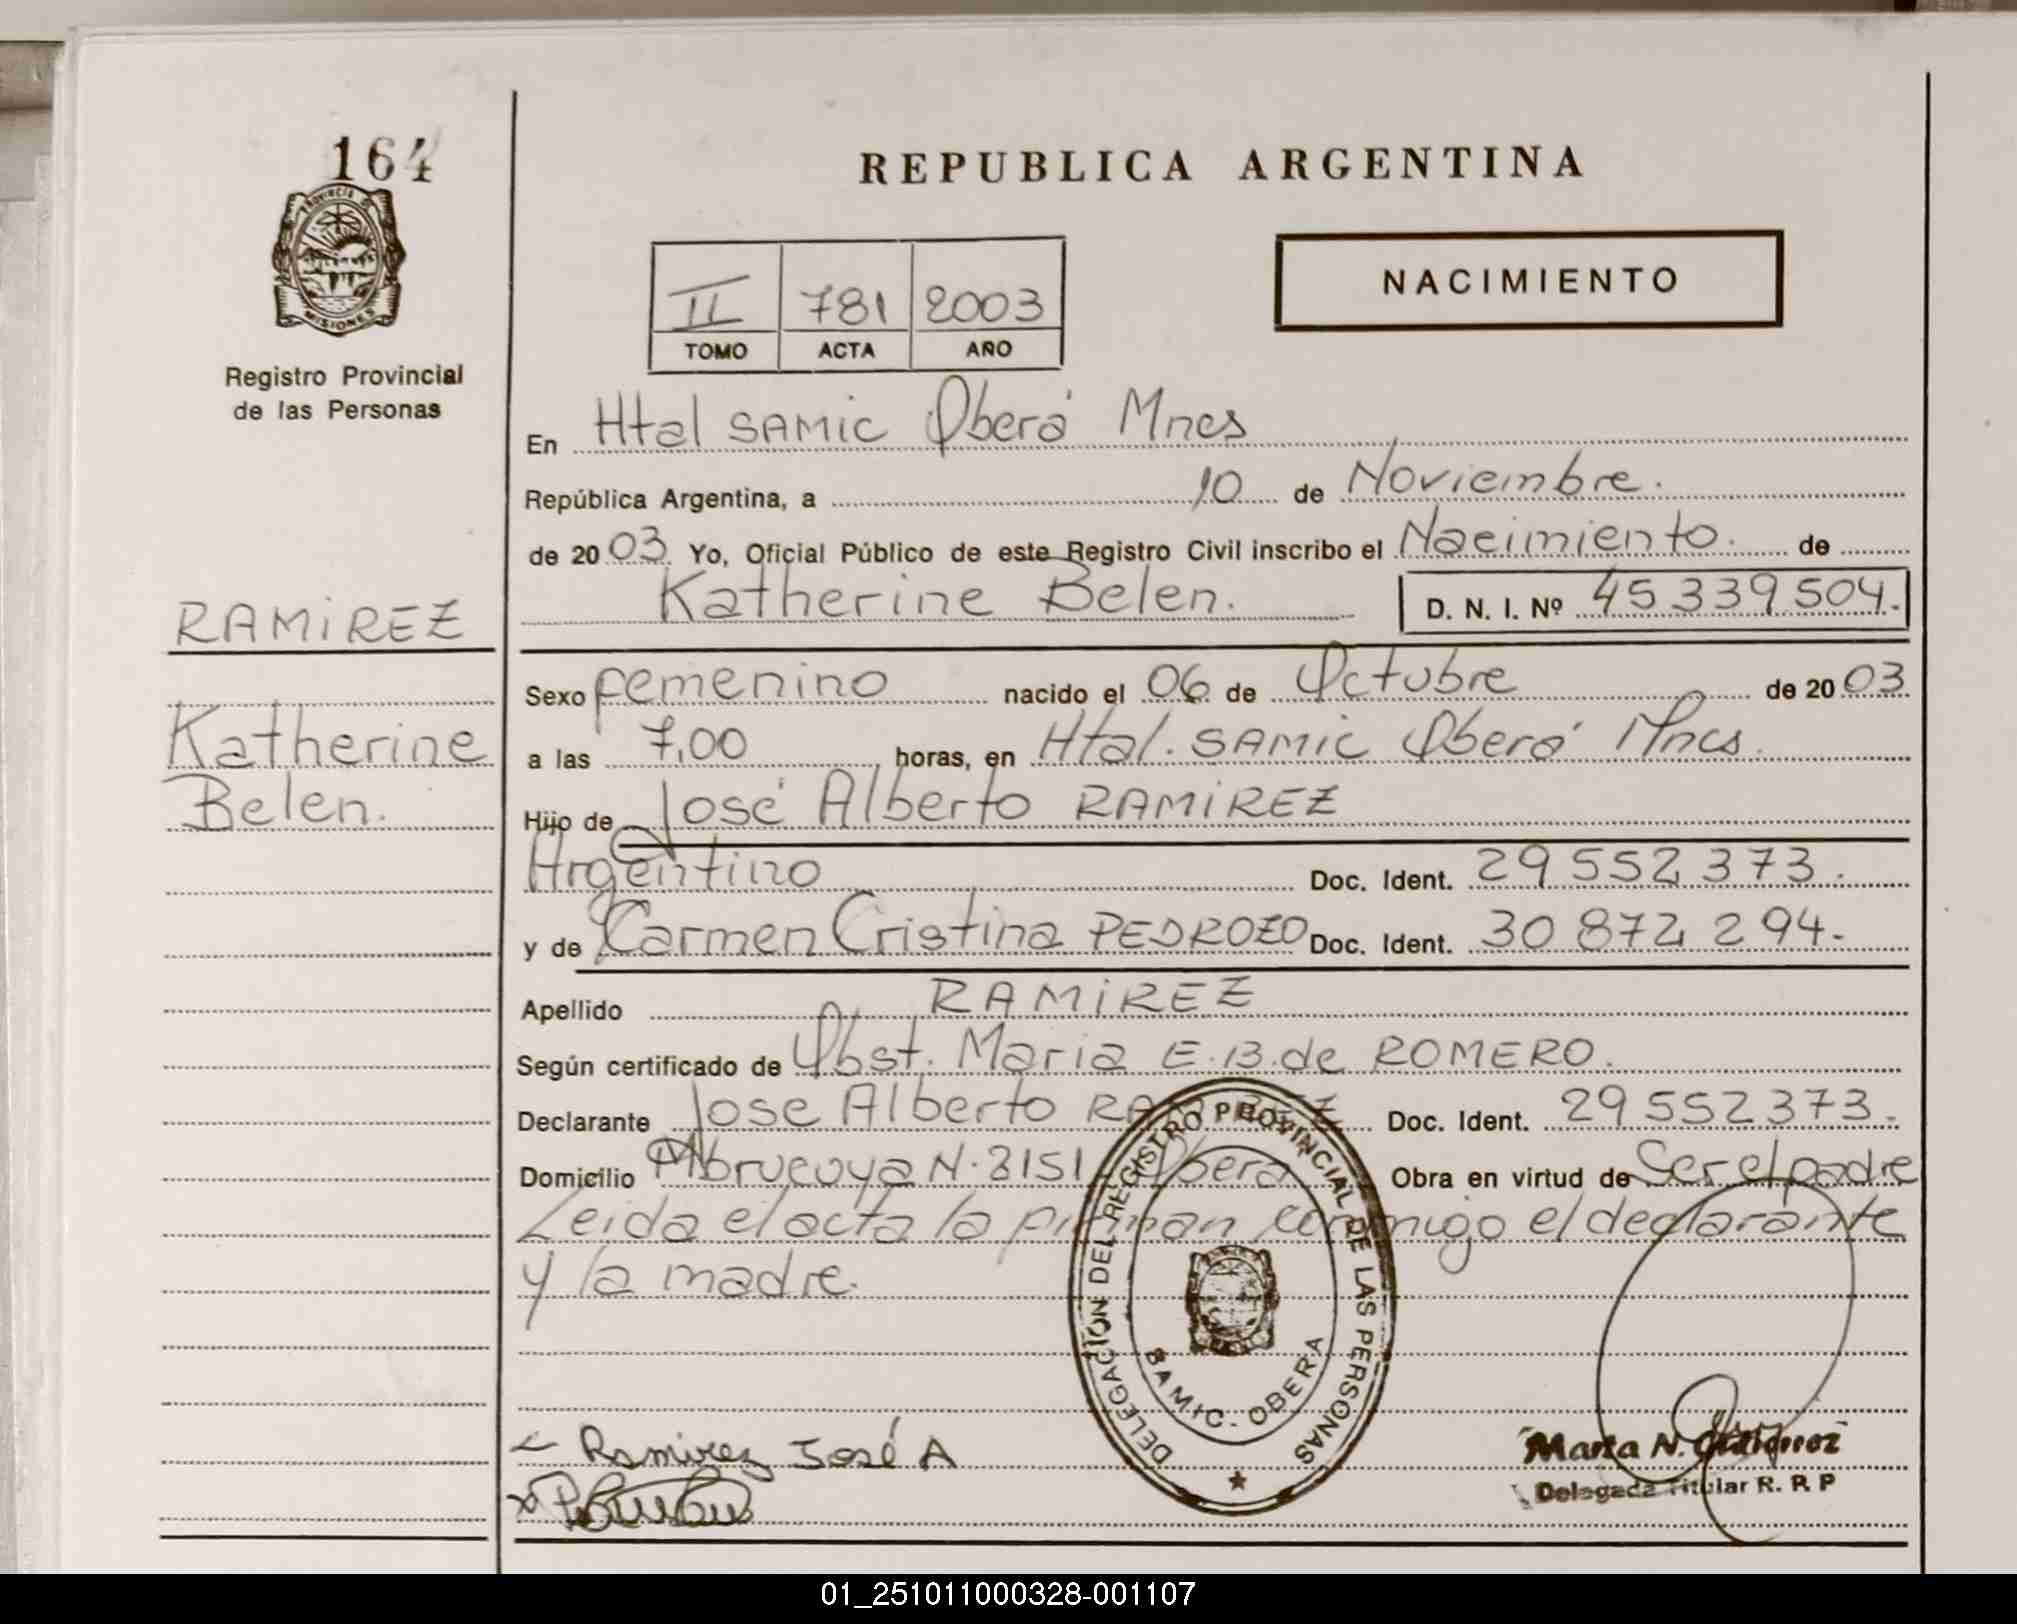 164
PROVINCIA DE
MISIONES
Registro Provincial
de las Personas
RAMIREZ
Katherine
Belen.
REPUBLICA ARGENTINA
II 781 2003
TOMO ACTA AÑO
NACIMIENTO
En Htal SAMIC Oberá Mnes
República Argentina, a 10 de Noviembre.
de 2003 Yo, Oficial Público de este Registro Civil inscribo el Nacimiento. de
Katherine Belen. D. N. I. Nº 45 339 504.
Sexo femenino nacido el 06 de Octubre de 2003
a las 7,00 horas, en Htal. SAMIC Oberá Mnes.
Hijo de José Alberto RAMIREZ
Argentino Doc. Ident. 29 552 373.
y de Carmen Cristina PEDROZO Doc. Ident. 30 872 294.
Apellido RAMIREZ
Según certificado de Obst. Maria E. B. de ROMERO.
Declarante Jose Alberto RAMIREZ Doc. Ident. 29 552 373.
Domicilio N. 3151 Obera Obra en virtud de Ser el padre
Leida el acta la firman conmigo el declarante
y la madre.
DELEGACION DEL REGISTRO PROVINCIAL DE LAS PERSONAS
SAMIC - OBERA
Ramirez José A
Marta N. Gutierrez
Delegada Titular R. R P
01_251011000328-001107